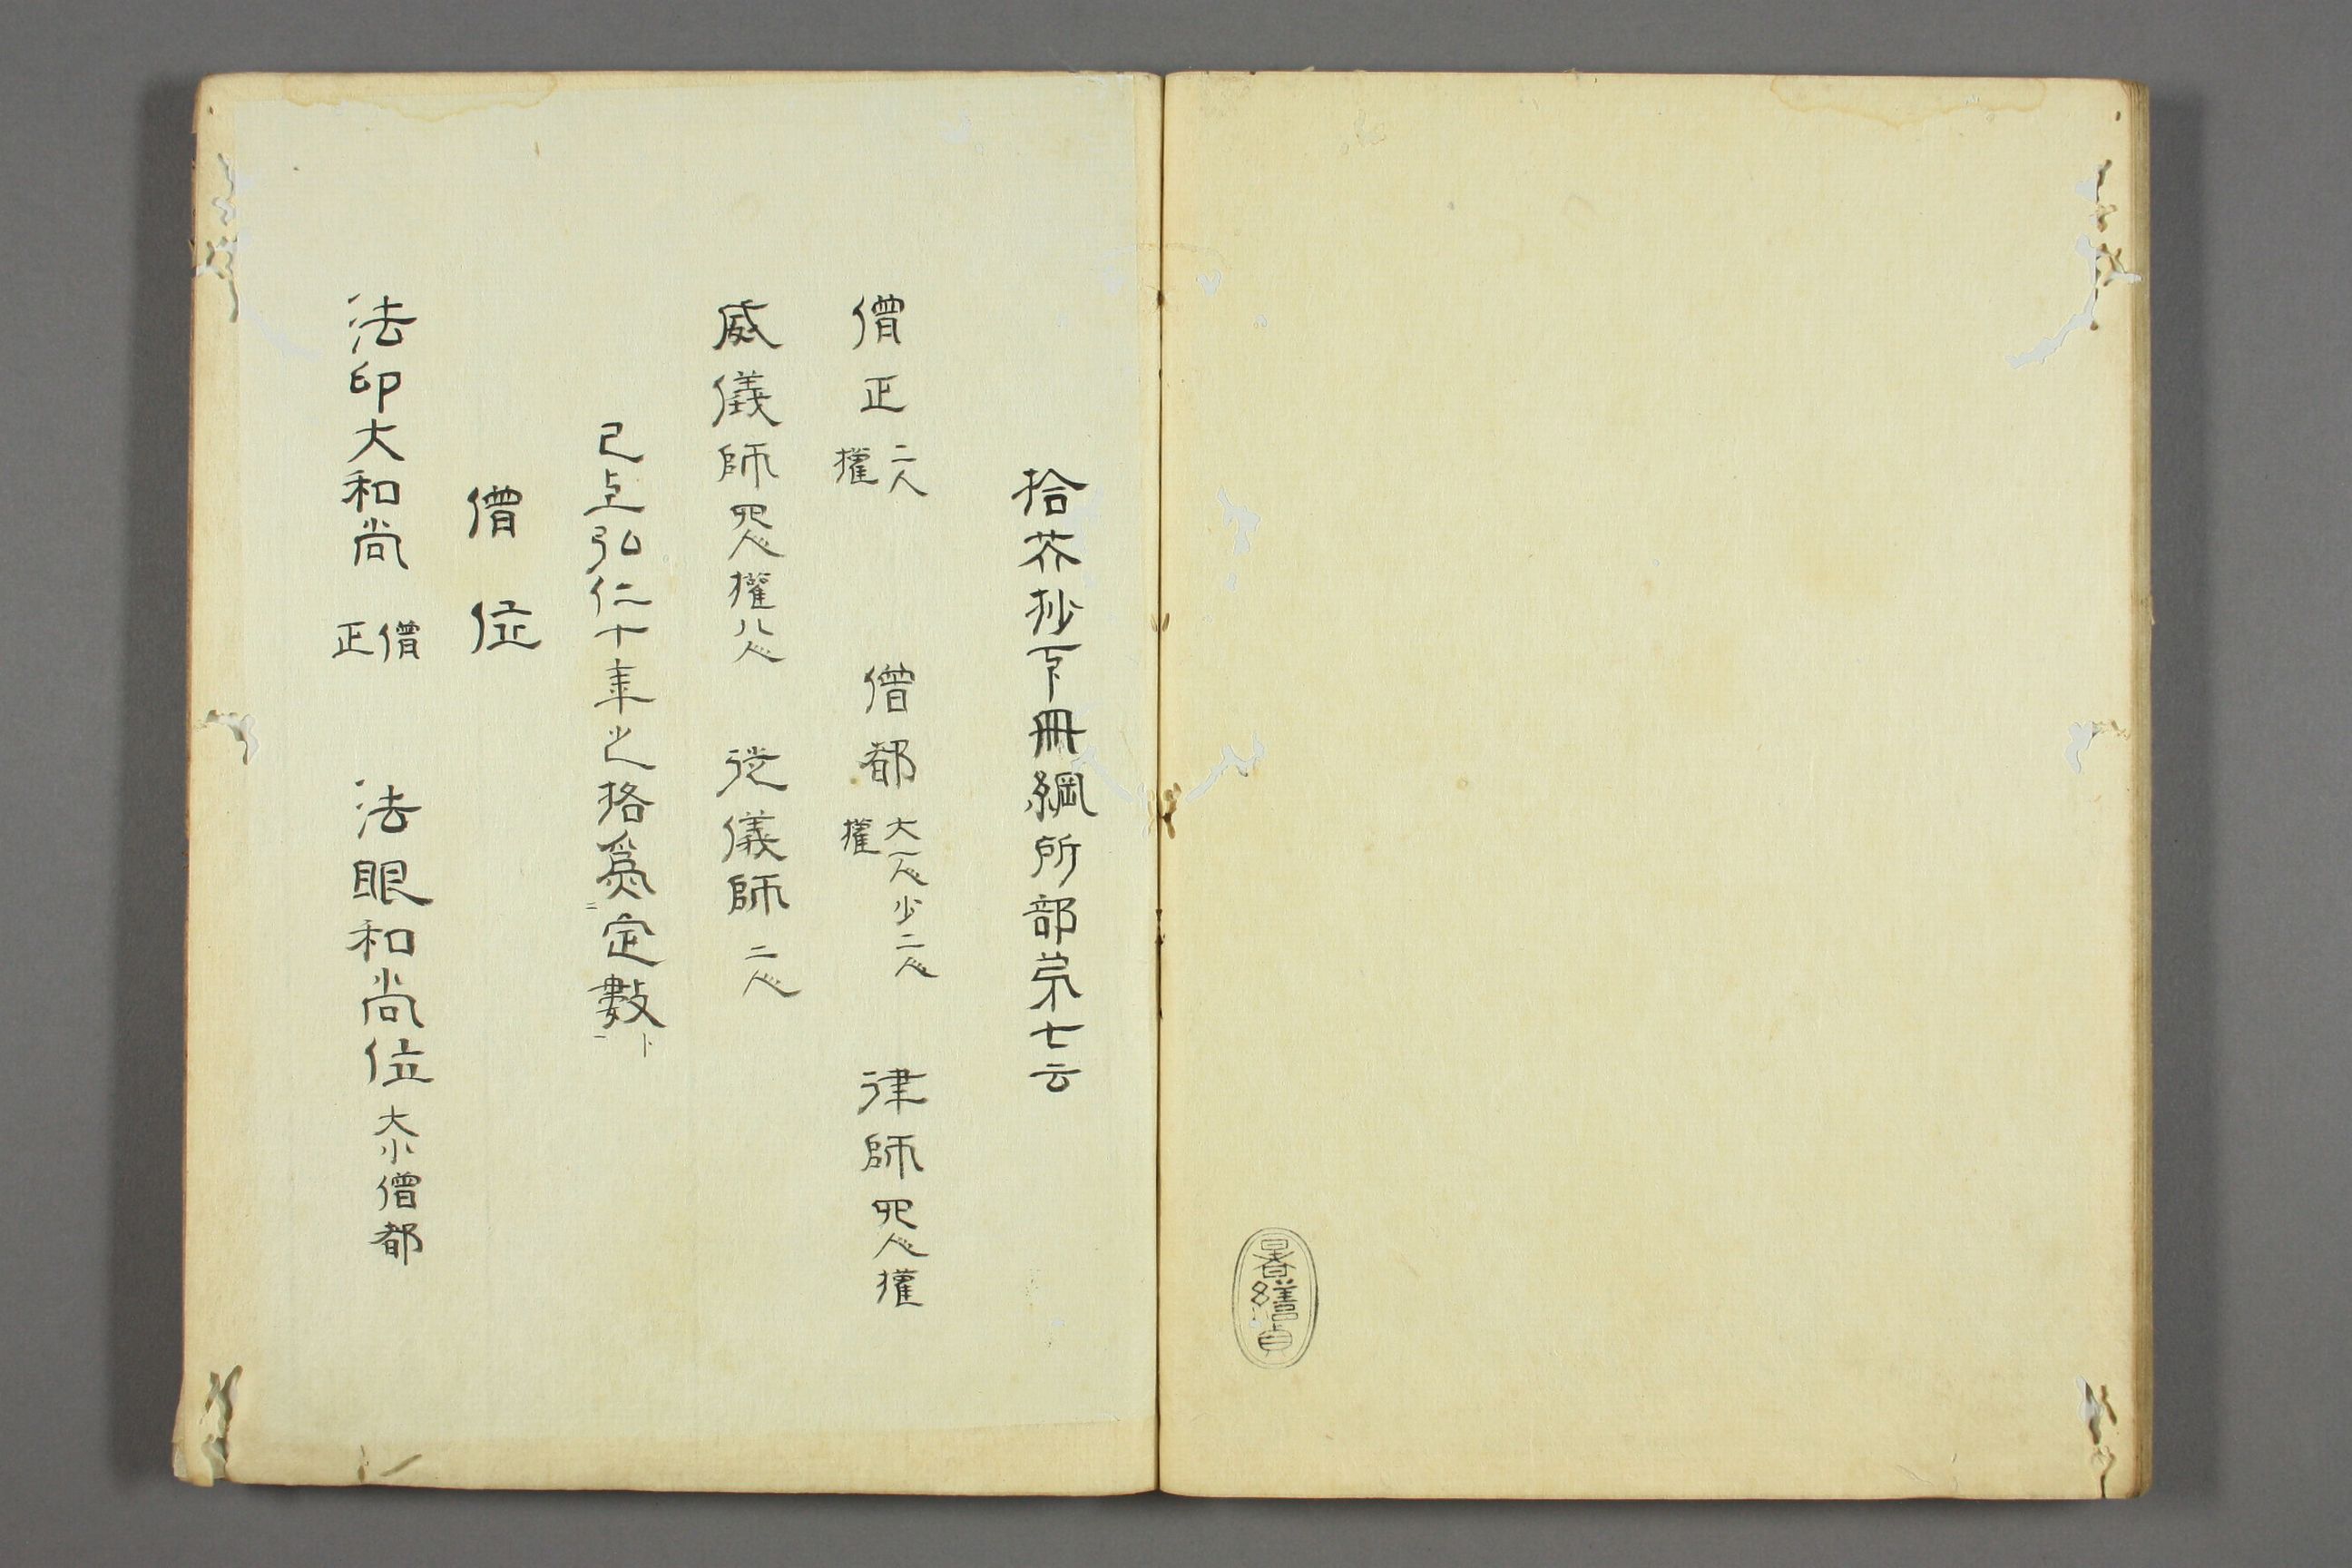 拾芥抄下冊綱所部苐七云
僧正 二人 權 僧都 大一人少二人 權 律師 四人權
威儀師 四人權八人 從儀師 二人
已上弘仁十年之格爲定數
僧位
法印大和尚 僧正 法眼和尚位 大小僧都